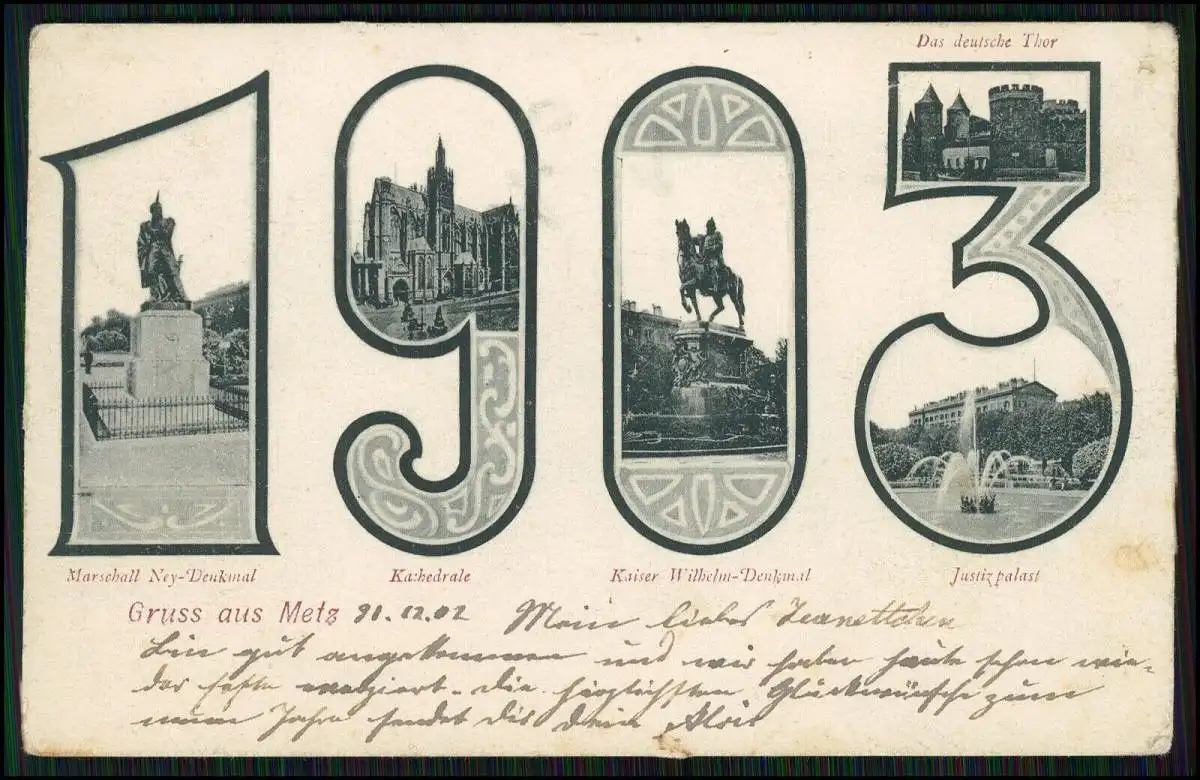 Das deutsche Thor
1903
Marschall Ney-Denkmal
Kathedrale
Kaiser Wilhelm-Denkmal
Justizpalast
Gruss aus Metz 31.12.02 Mein liebes Jeanettchen
Bin gut angekommen und wir haben heute schon wie-
der feste exerziert. Die herzlichsten Glückwünsche zum
neuen Jahre sendet Dir Dein Alois